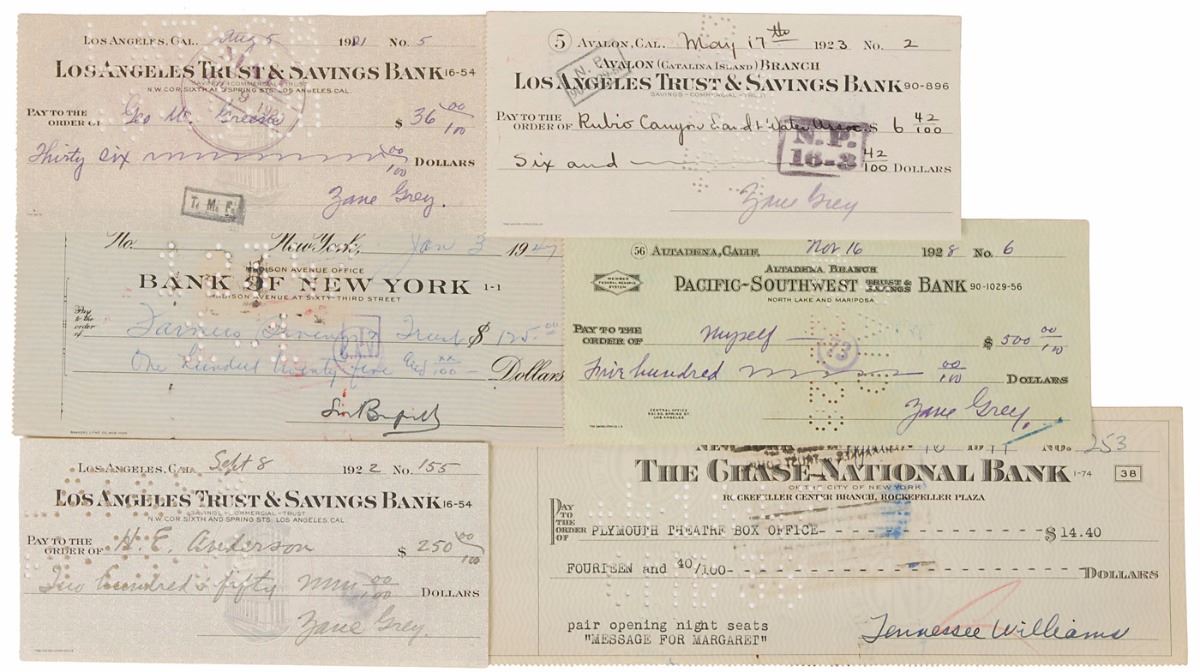 LOS ANGELES, CAL. Aug 5 1921 No. 5
LOS ANGELES TRUST & SAVINGS BANK 16-54
SAVINGS-COMMERCIAL-TRUST
N.W. COR. SIXTH AND SPRING STS. LOS ANGELES, CAL.
PAY TO THE
ORDER OF Geo M. $ 36 00/100
Thirty six 00/100 DOLLARS
T. M. F.
Zane Grey.
5 AVALON, CAL. May 17th 1923 No. 2
N. P.
AVALON (CATALINA ISLAND) BRANCH
LOS ANGELES TRUST & SAVINGS BANK 90-896
SAVINGS-COMMERCIAL-TRUST
PAY TO THE
ORDER OF Rubio Canyon Land & Water Assoc. $ 6 42/100
N.P.
16-3
Six and 42/100 DOLLARS
Zane Grey
No. New York, Jan 3 1947
MADISON AVENUE OFFICE
BANK OF NEW YORK 1-1
MADISON AVENUE AT SIXTY-THIRD STREET
Pay
to the
order
of Trust $ 125.00
One hundred twenty five and xx/100 Dollars
56 ALTADENA, CALIF. Nov 16 1928 No. 6
MEMBER
FEDERAL RESERVE
SYSTEM
ALTADENA BRANCH
PACIFIC-SOUTHWEST TRUST & SAVINGS BANK 90-1029-56
NORTH LAKE AND MARIPOSA
PAY TO THE
ORDER OF Myself $ 500 00/100
73
Five hundred 00/100 DOLLARS
CENTRAL OFFICE
LOS ANGELES
Zane Grey.
LOS ANGELES, CAL. Sept 8 1922 No. 155
LOS ANGELES TRUST & SAVINGS BANK 16-54
SAVINGS-COMMERCIAL-TRUST
N.W. COR. SIXTH AND SPRING STS. LOS ANGELES, CAL.
PAY TO THE
ORDER OF H. E. Anderson $ 250 00/100
Two hundred & fifty 00/100 DOLLARS
Zane Grey.
NEW YORK No. 253
THE CHASE NATIONAL BANK 1-74 38
OF THE CITY OF NEW YORK
ROCKEFELLER CENTER BRANCH, ROCKEFELLER PLAZA
PAY
TO
THE
ORDER
OF PLYMOUTH THEATRE BOX OFFICE- - - - - - - - - - - - - - - - $ 14.40
FOURTEEN and 40/100- - - - - - - - - - - - - - - - DOLLARS
pair opening night seats
"MESSAGE FOR MARGARET"
Tennessee Williams